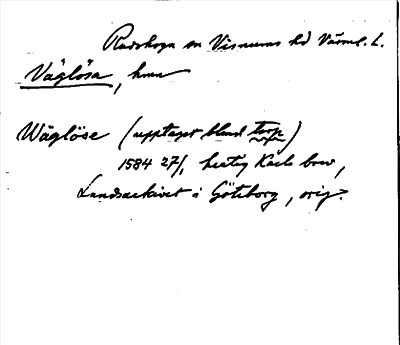 Rudskoga sn Visnums hd Värml. l.
Väglösa, hmn
Wäglöse (upptaget bland torp)
1584 27/1, hertig Karls brev,
Landsarkivet i Göteborg, orig.